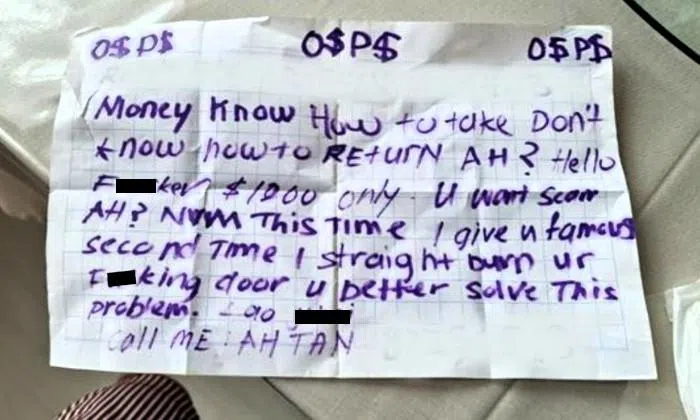 O$P$ O$P$ O$P$
Money Know How to take Don't
know how to RETURN AH? Hello
F ker $1000 only. U want scam
AH? NVM This Time I give u famous
second Time I straight burn ur
F king door u better solve This
problem.
Call ME: AH TAN